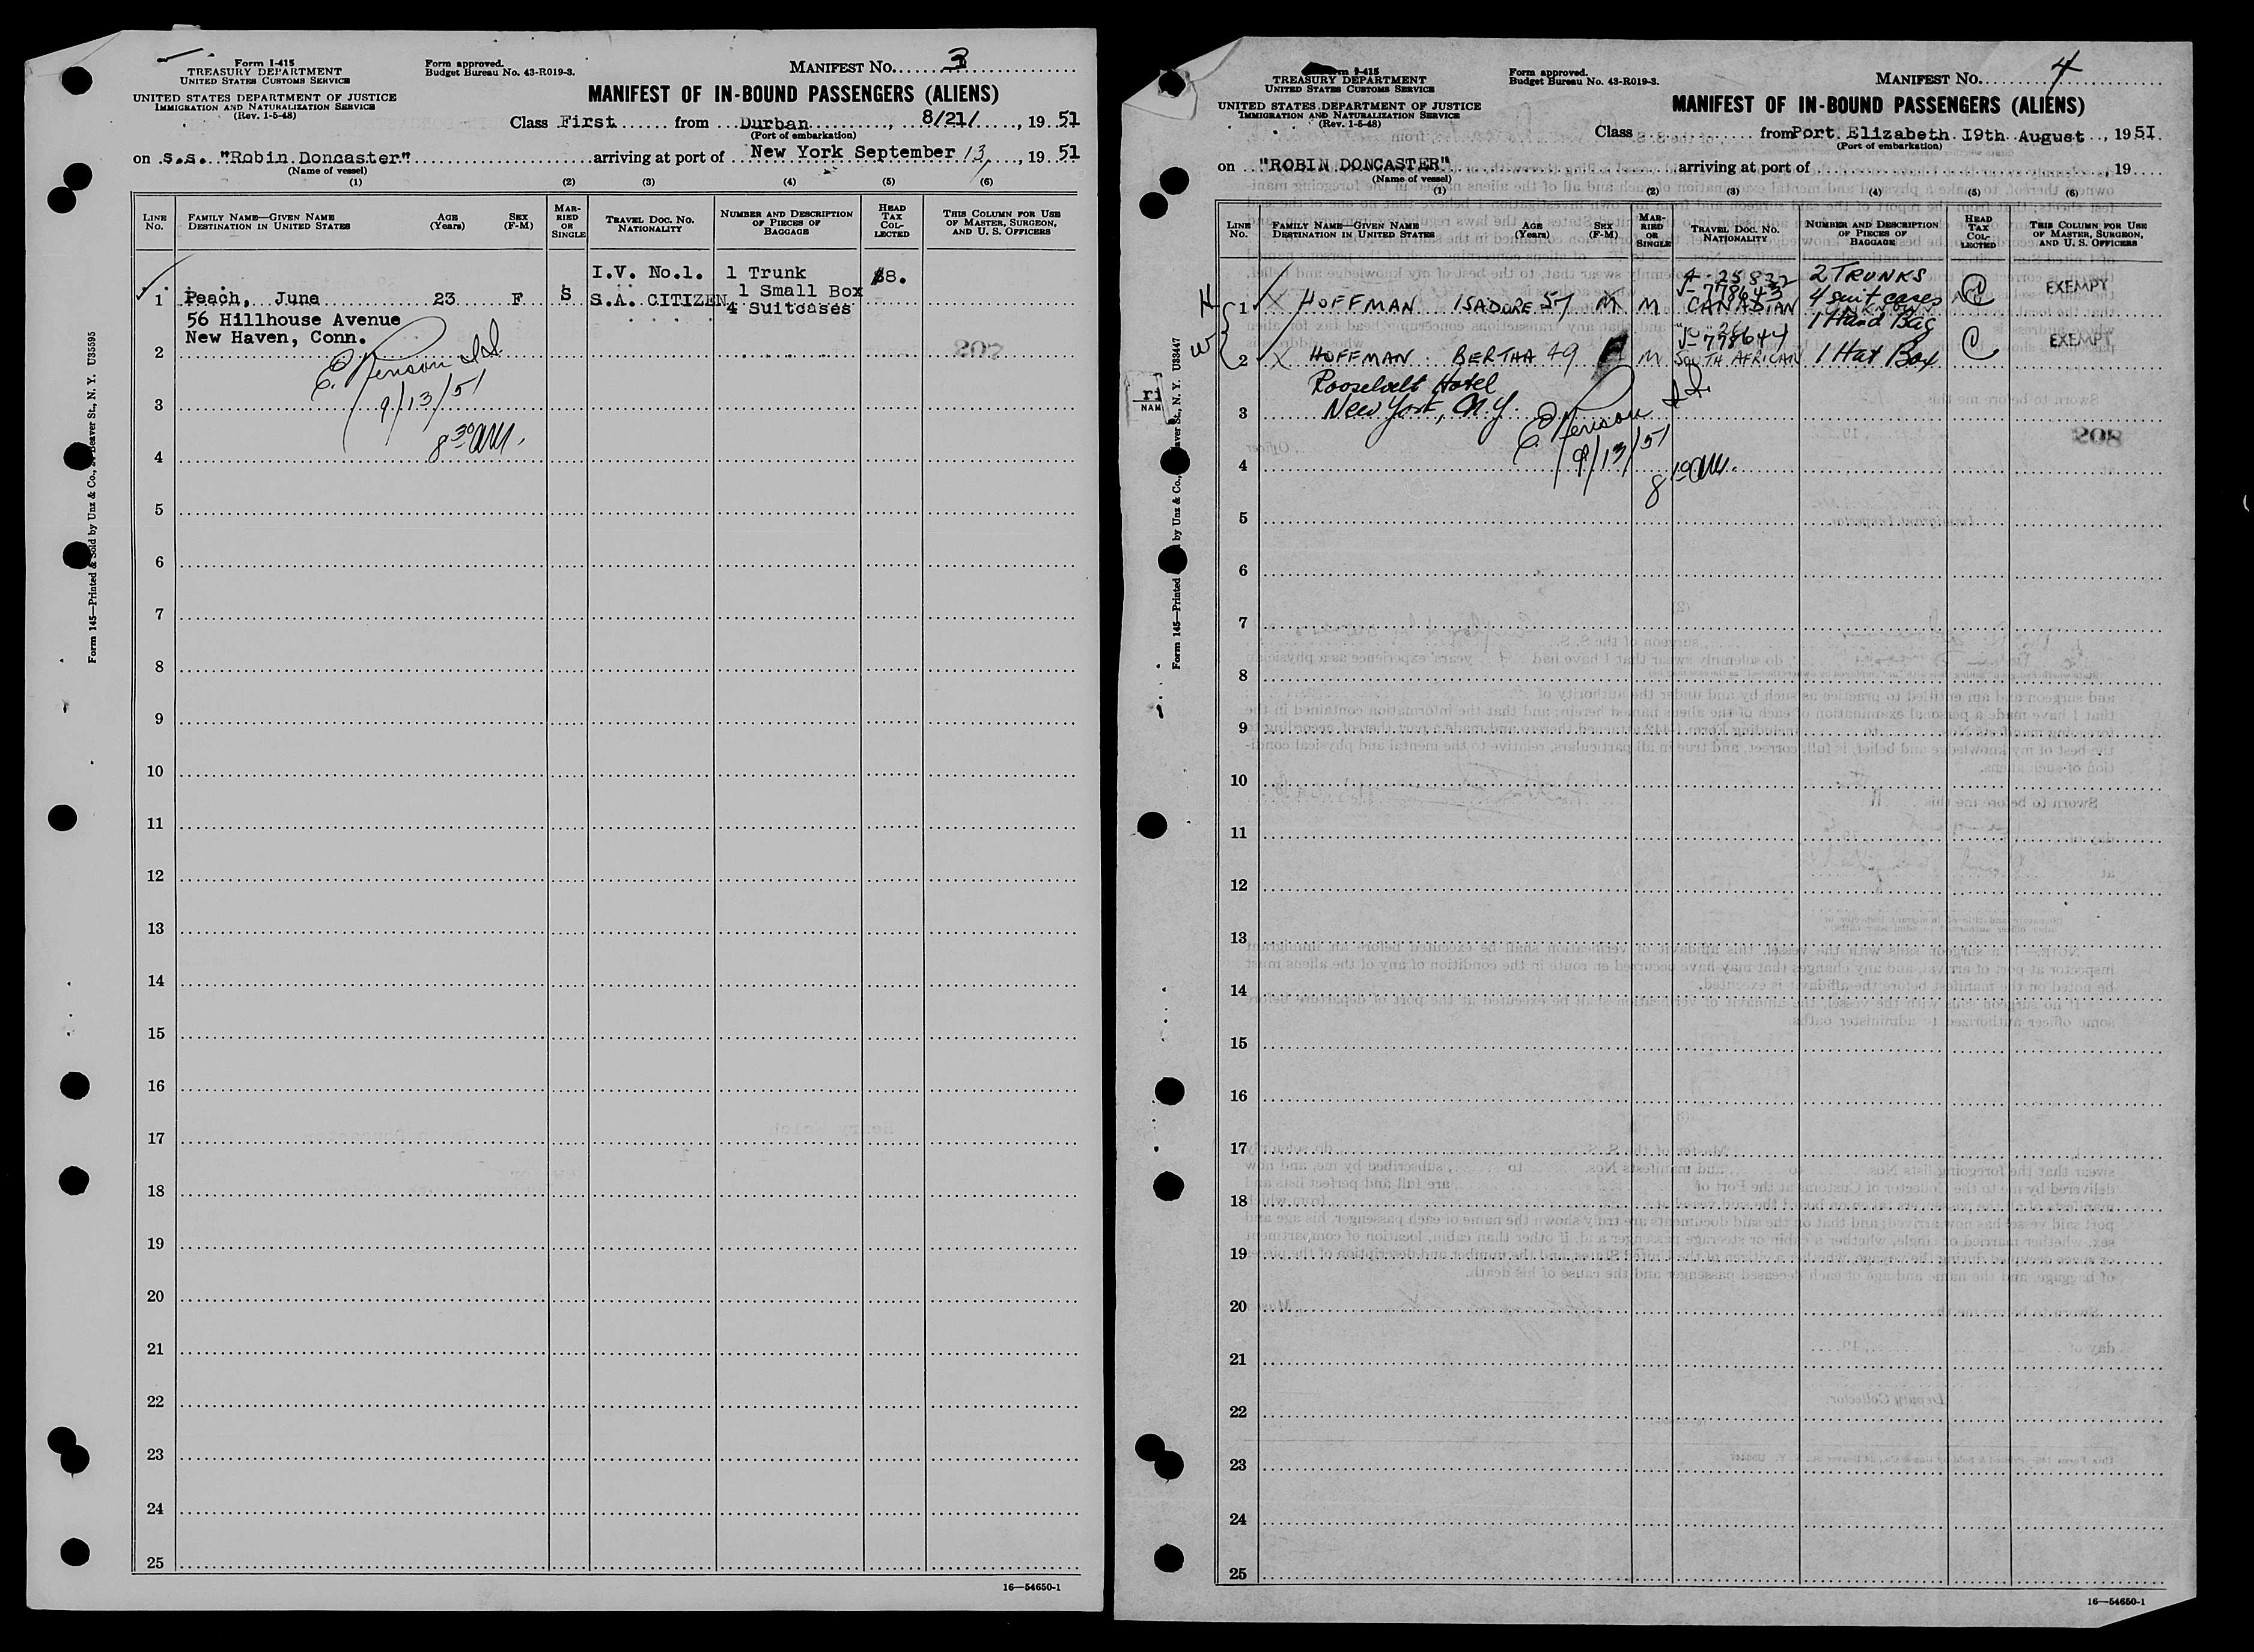 Form I-415
TREASURY DEPARTMENT
UNITED STATES CUSTOMS SERVICE
UNITED STATES DEPARTMENT OF JUSTICE
IMMIGRATION AND NATURALIZATION SERVICE
(Rev. 1-5-48)
Form approved.
Budget Bureau No. 43-R019-3.
MANIFEST NO. 3
MANIFEST OF IN-BOUND PASSENGERS (ALIENS)
Class First from Durban, 8/21/, 19 51
(Port of embarkation)
on s.s. "Robin Doncaster" arriving at port of New York September 13, 19 51
(Name of vessel)
(1) (2) (3) (4) (5) (6)
LINE No. FAMILY NAME—GIVEN NAME DESTINATION IN UNITED STATES AGE (Years) SEX (F-M) MARRIED OR SINGLE TRAVEL DOC. NO. NATIONALITY NUMBER AND DESCRIPTION OF PIECES OF BAGGAGE HEAD TAX COLLECTED THIS COLUMN FOR USE OF MASTER, SURGEON, AND U. S. OFFICERS
I.V. No.1. 1 Trunk $8.
1 Small Box
1 Peach, June 23 F S S.A. CITIZEN 4 Suitcases
56 Hillhouse Avenue
New Haven, Conn.
2
9/13/51
3
8 30 AM.
4
5
6
7
8
9
10
11
12
13
14
15
16
17
18
19
20
21
22
23
24
25
16—54650-1
Form 145—Printed & Sold by Unz & Co., Beaver St., N. Y. U35595
I-415
TREASURY DEPARTMENT
UNITED STATES CUSTOMS SERVICE
UNITED STATES DEPARTMENT OF JUSTICE
IMMIGRATION AND NATURALIZATION SERVICE
(Rev. 1-5-48)
Form approved.
Budget Bureau No. 43-R019-3.
MANIFEST NO. 4
MANIFEST OF IN-BOUND PASSENGERS (ALIENS)
Class from Port Elizabeth 19th August, 19 51.
(Port of embarkation)
on "ROBIN DONCASTER" arriving at port of , 19
(Name of vessel)
(1) (2) (3) (4) (5) (6)
LINE No. FAMILY NAME—GIVEN NAME DESTINATION IN UNITED STATES AGE (Years) SEX (F-M) MARRIED OR SINGLE TRAVEL DOC. NO. NATIONALITY NUMBER AND DESCRIPTION OF PIECES OF BAGGAGE HEAD TAX COLLECTED THIS COLUMN FOR USE OF MASTER, SURGEON, AND U. S. OFFICERS
2 TRUNKS
V-798643
H 1 HOFFMAN ISADORE 57 M M CANADIAN 4 suit cases EXEMPT
1 Hand Bag
V-798644
W 2 HOFFMAN BERTHA 49 M SOUTH AFRICAN 1 Hat Box EXEMPT
Roosevelt Hotel
3 New York, N.Y.
9/13/51
4
5
6
7
8
9
10
11
12
13
14
15
16
17
18
19
20
21
22
23
24
25
16—54650-1
Form 145—Printed by Unz & Co., Beaver St., N. Y. U33447